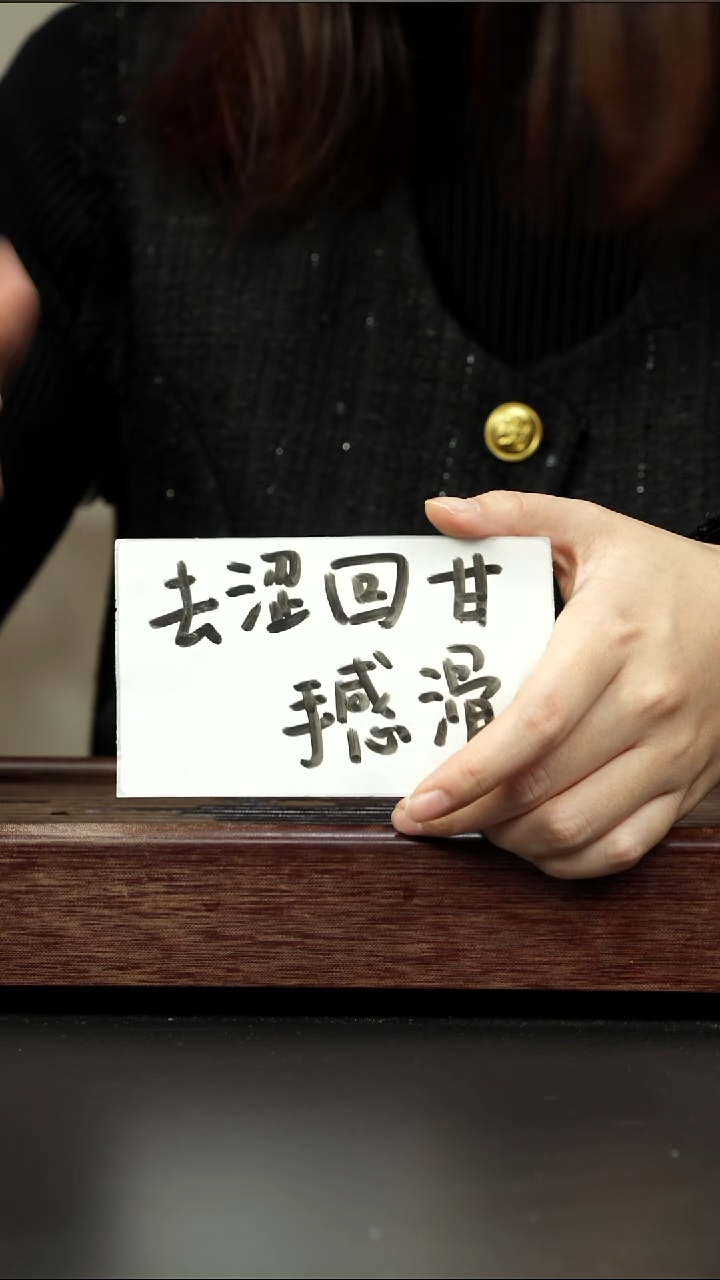 去涩回甘
手感滑